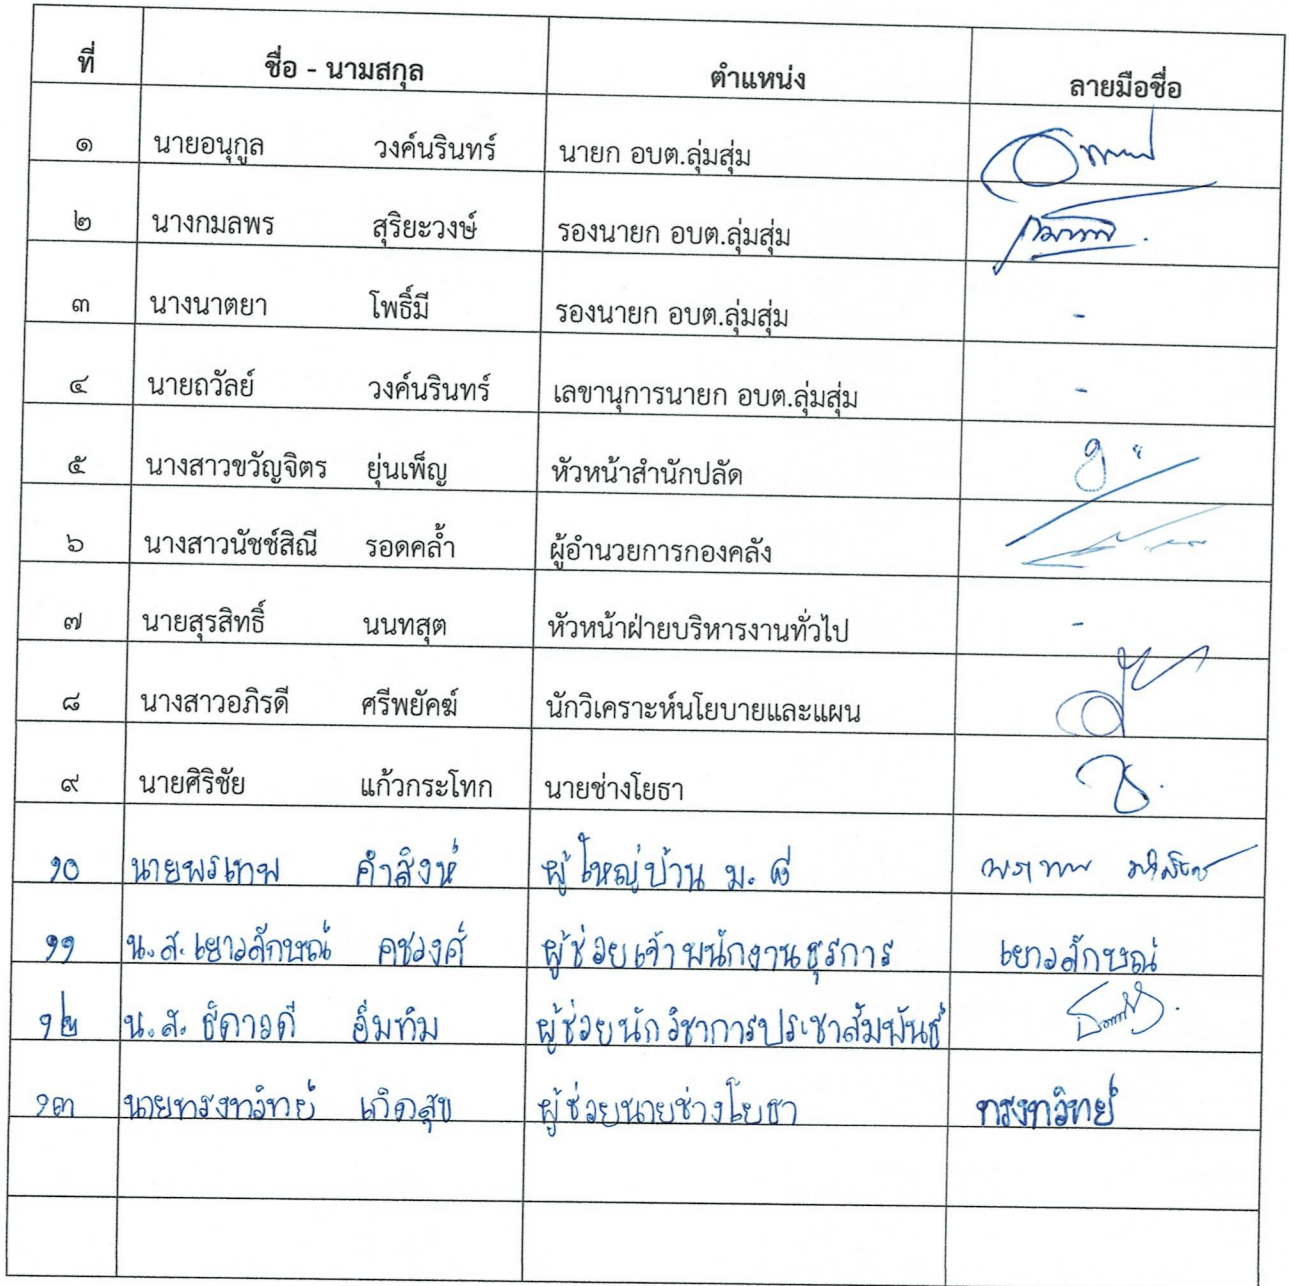 ที่ ชื่อ - นามสกุล ตำแหน่ง ลายมือชื่อ
๑ นายอนุกูล วงค์นรินทร์ นายก อบต.ลุ่มสุ่ม
๒ นางกมลพร สุริยะวงษ์ รองนายก อบต.ลุ่มสุ่ม
๓ นางนาตยา โพธิ์มี รองนายก อบต.ลุ่มสุ่ม -
๔ นายถวัลย์ วงค์นรินทร์ เลขานุการนายก อบต.ลุ่มสุ่ม -
๕ นางสาวขวัญจิตร ยุ่นเพ็ญ หัวหน้าสำนักปลัด
๖ นางสาวนัชช์สิณี รอดคล้ำ ผู้อำนวยการกองคลัง
๗ นายสุรสิทธิ์ นนทสุต หัวหน้าฝ่ายบริหารงานทั่วไป -
๘ นางสาวอภิรดี ศรีพยัคฆ์ นักวิเคราะห์นโยบายและแผน
๙ นายศิริชัย แก้วกระโทก นายช่างโยธา
๑๐ นายพรเทพ คำสิงห์ ผู้ใหญ่บ้าน ม.
๑๑ น.ส. เยาวลักษณ์ คชวงศ์ ผู้ช่วยเจ้าพนักงานธุรการ เยาวลักษณ์
๑๒ น.ส. ธิดาวดี อิ่มทิม ผู้ช่วยนักวิชาการประชาสัมพันธ์
๑๓ นายทรงทวิทย์ เกิดสุข ผู้ช่วยนายช่างโยธา ทรงทวิทย์